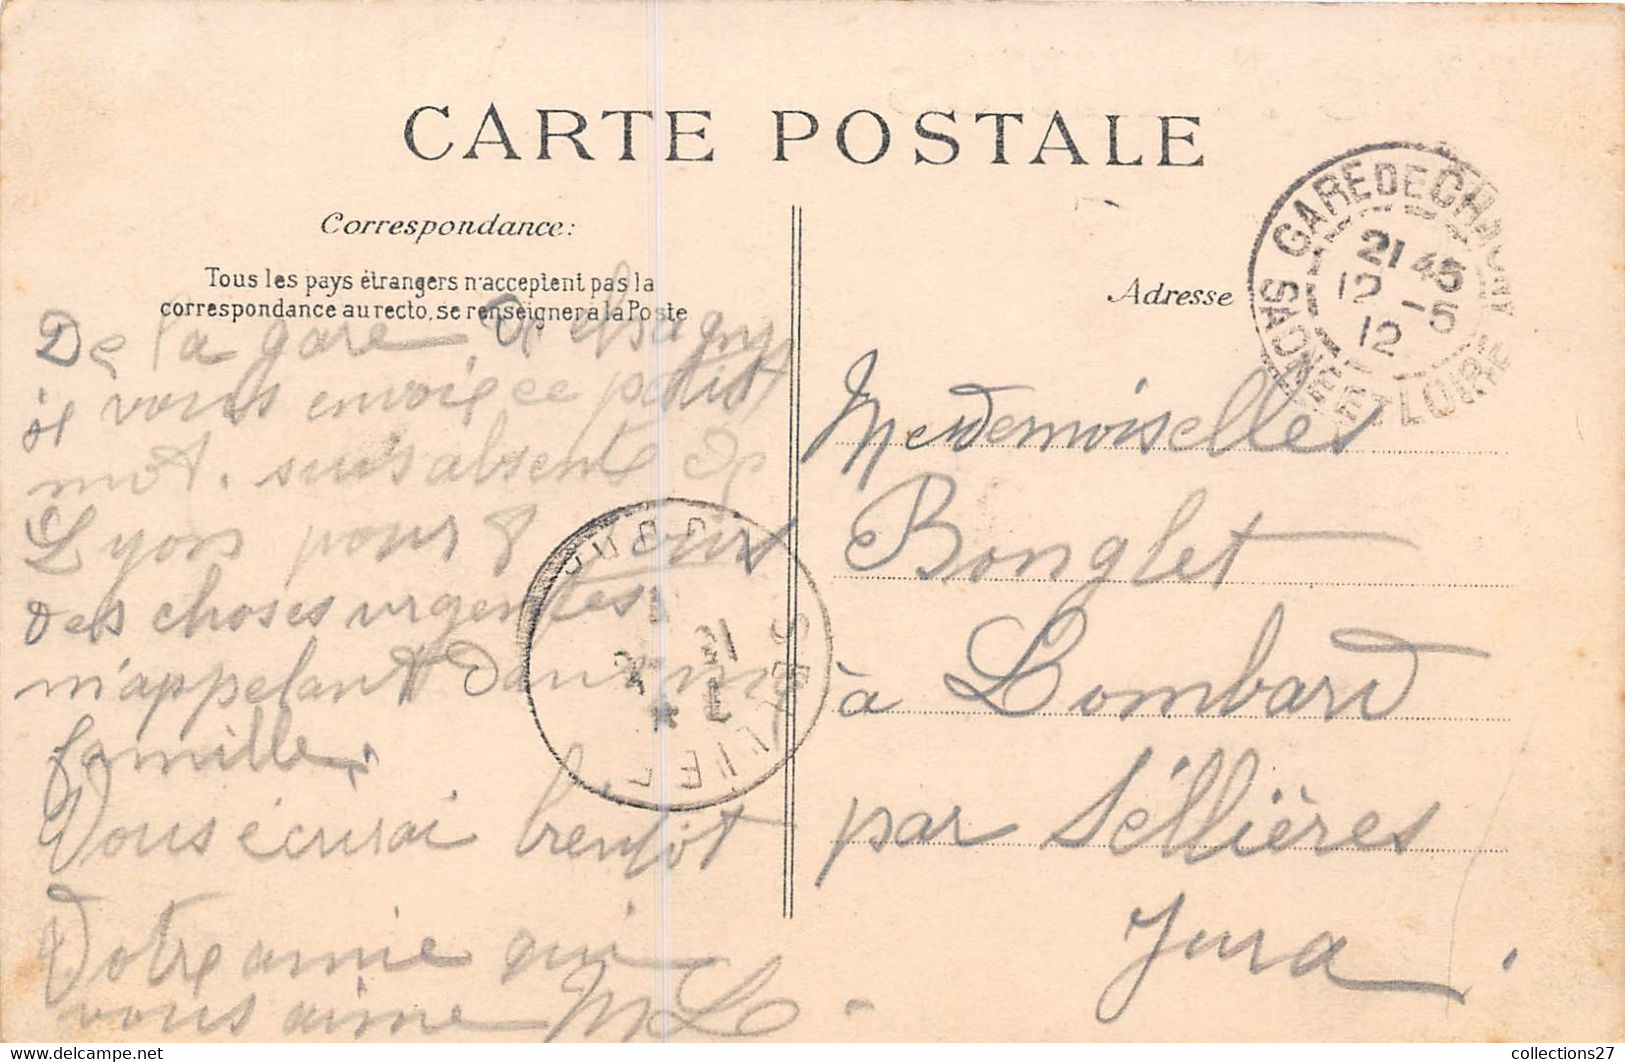 CARTE POSTALE
Correspondance:
Tous les pays étrangers n'acceptent pas la
correspondance au recto, se renseigner à la Poste
De la gare de Chagny
je vous envoie ce petit
mot. suis absente de
Lyon pour 8 jours
des choses urgentes
m'appelant dans ma
famille.
Vous écrirai bientôt
Votre amie qui
vous aime M L.
Adresse
GARE DE CHAGNY
21 45
12 -5
12
SAONE ET LOIRE
Mesdemoiselles
Bonglet
à Lombard
par Séllières
Jura.
JURA
12
SELLIERES
collections27